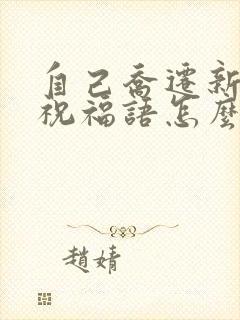 自己喬遷新
祝福語怎麼
趙婧